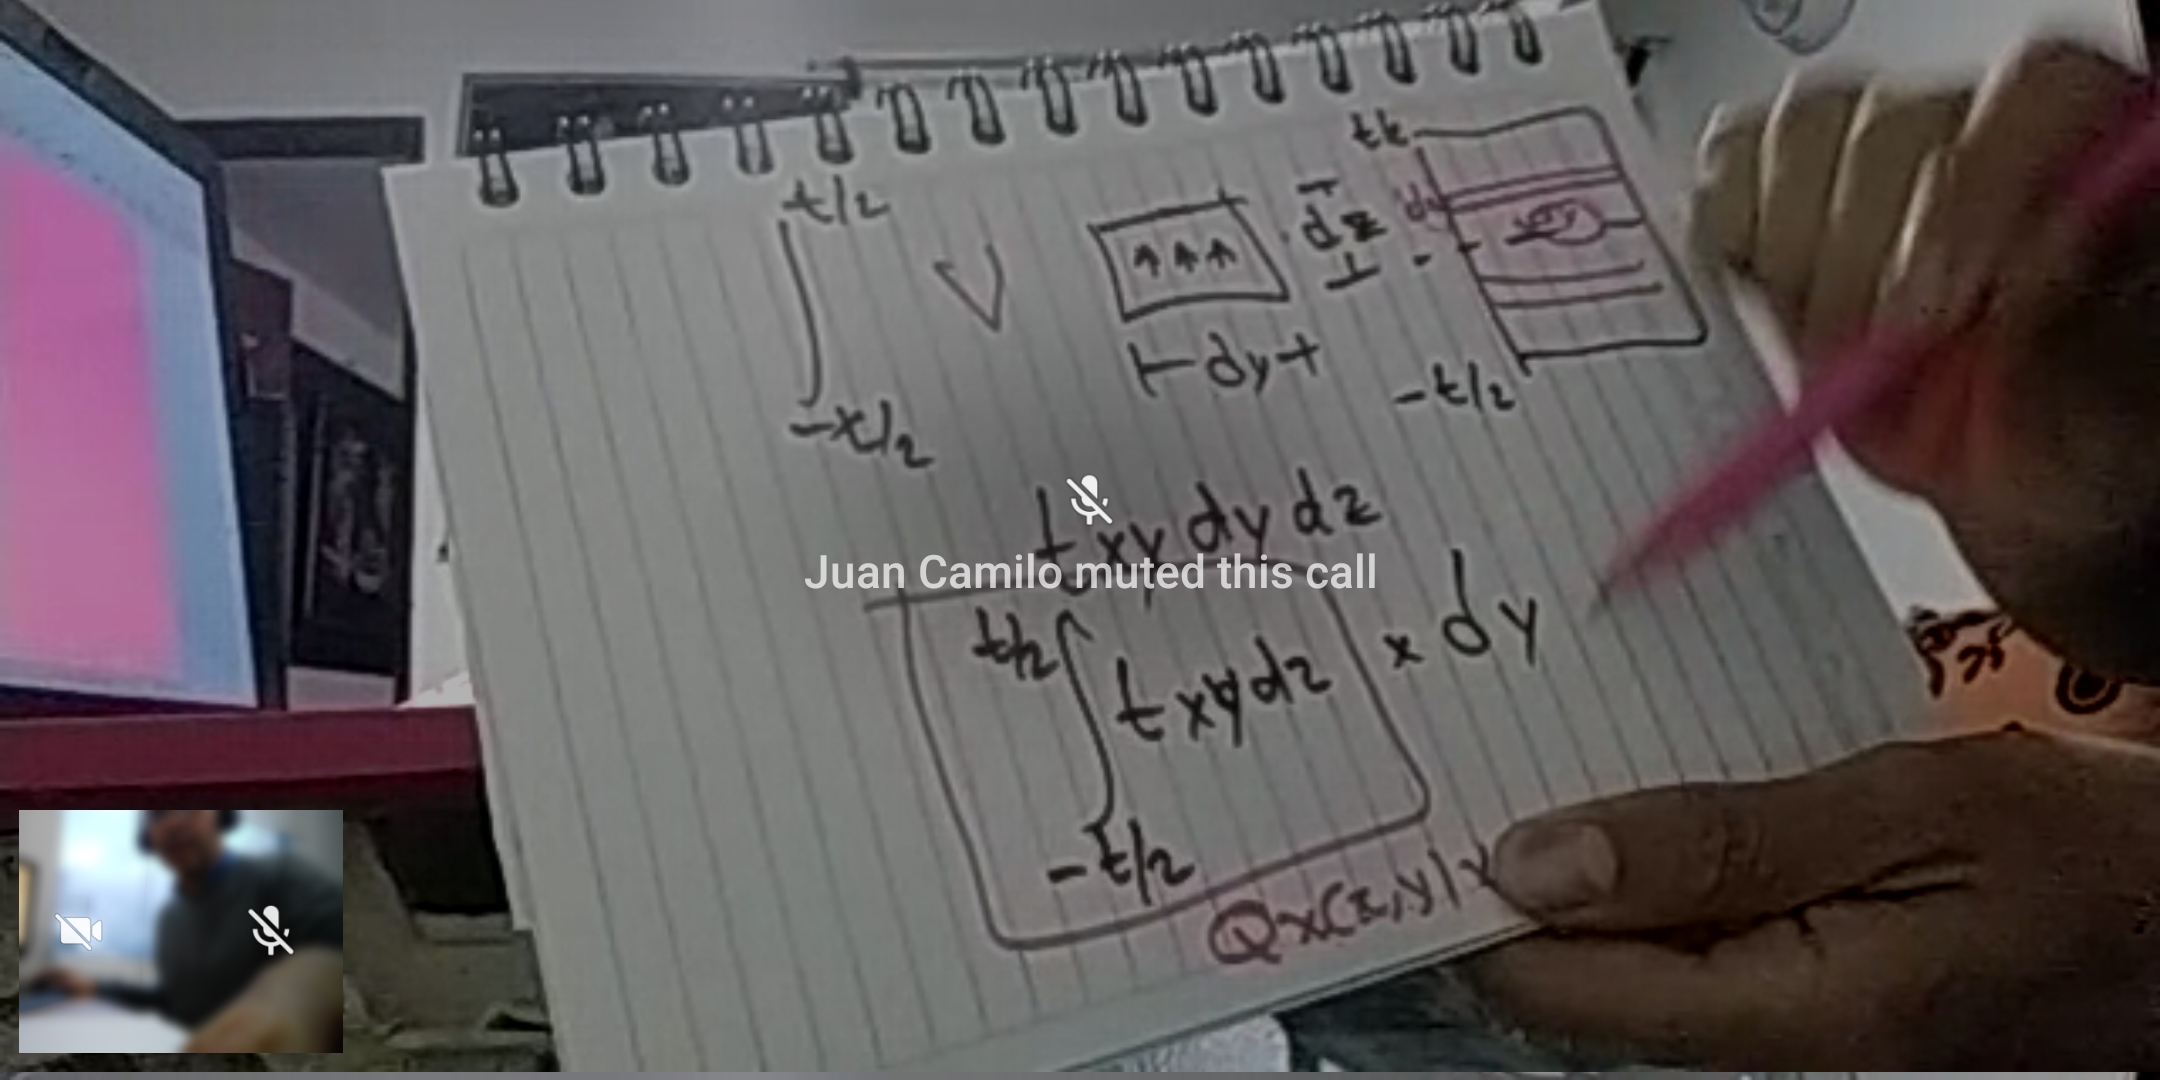 t/2
V
dz
tk
dy
-x/2
⊢dy+
-t/2
txy dy dz
Juan Camilo muted this call
t/2 ∫ txydz × dy
-t/2
Qx(x,y)